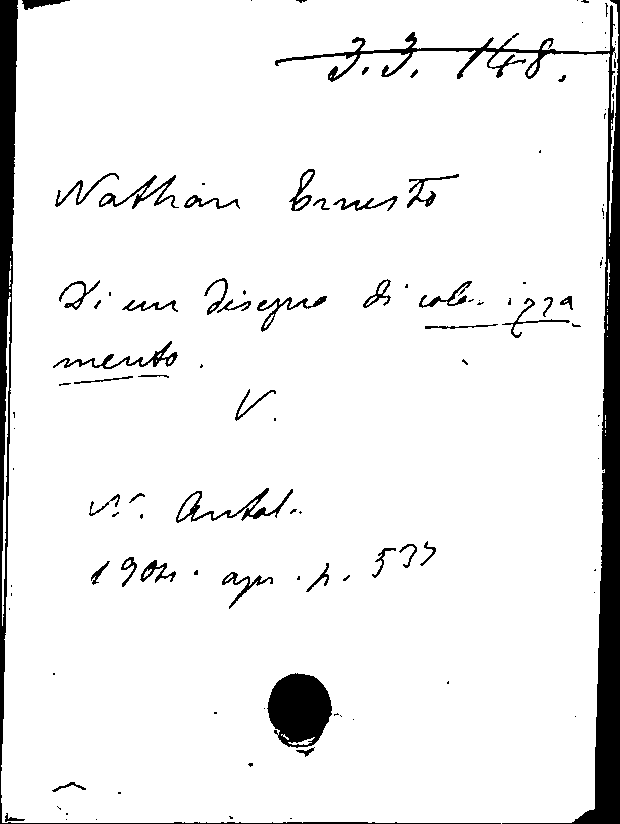 3.3. 148.
Nathan Ernesto
Di un disegno di colo. izza
mento.
V.
N. Antol.
1904. apr. p. 537